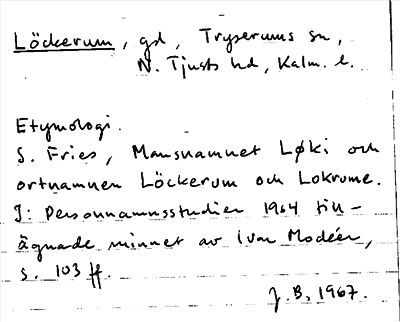 Löckerum, gd, Tryserums sn,
N. Tjusts hd, Kalm. l.
Etymologi.
S. Fries, Mansnamnet Løki och
ortnamnen Löckerum och Lokrume.
I: Personnamnsstudier 1964 till-
ägnade minnet av Ivar Modéer,
s. 103 ff.
J.B, 1967.